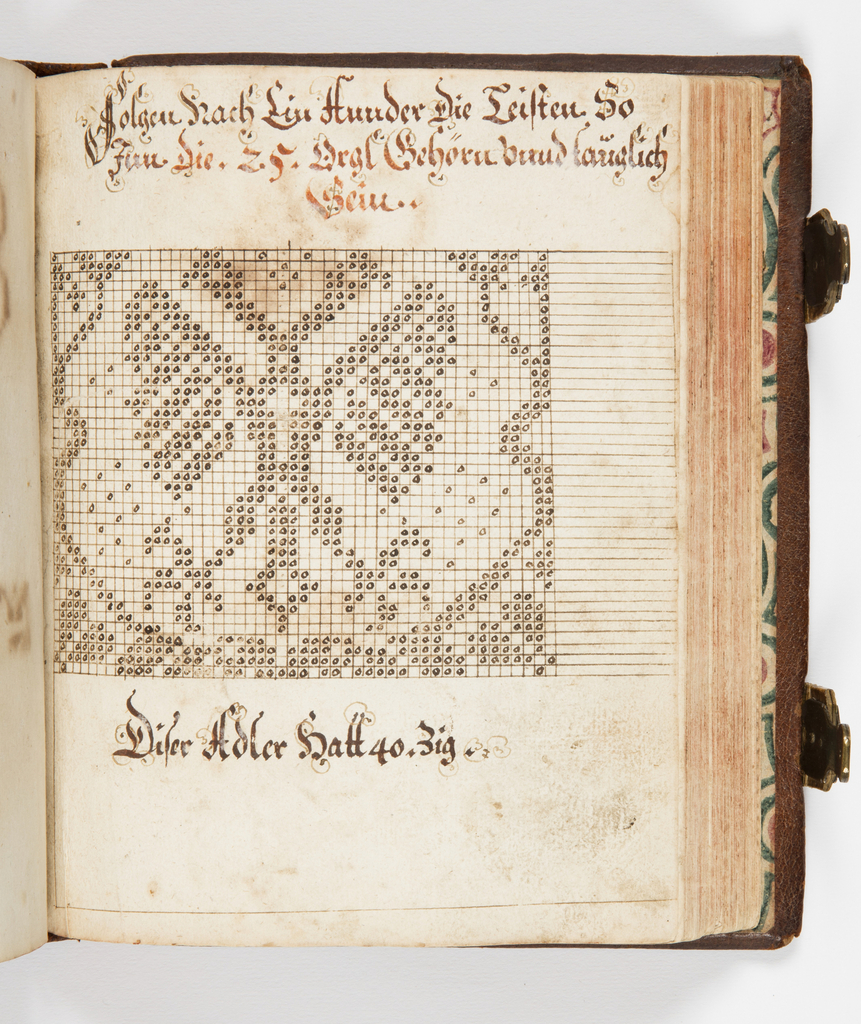 Folgen Nach Ein Annder Die Leisten. So
Inn. die. 25. Orgl Gehörn vnnd tauglich
Sein..
Diser Adler Hatt 40. Zig